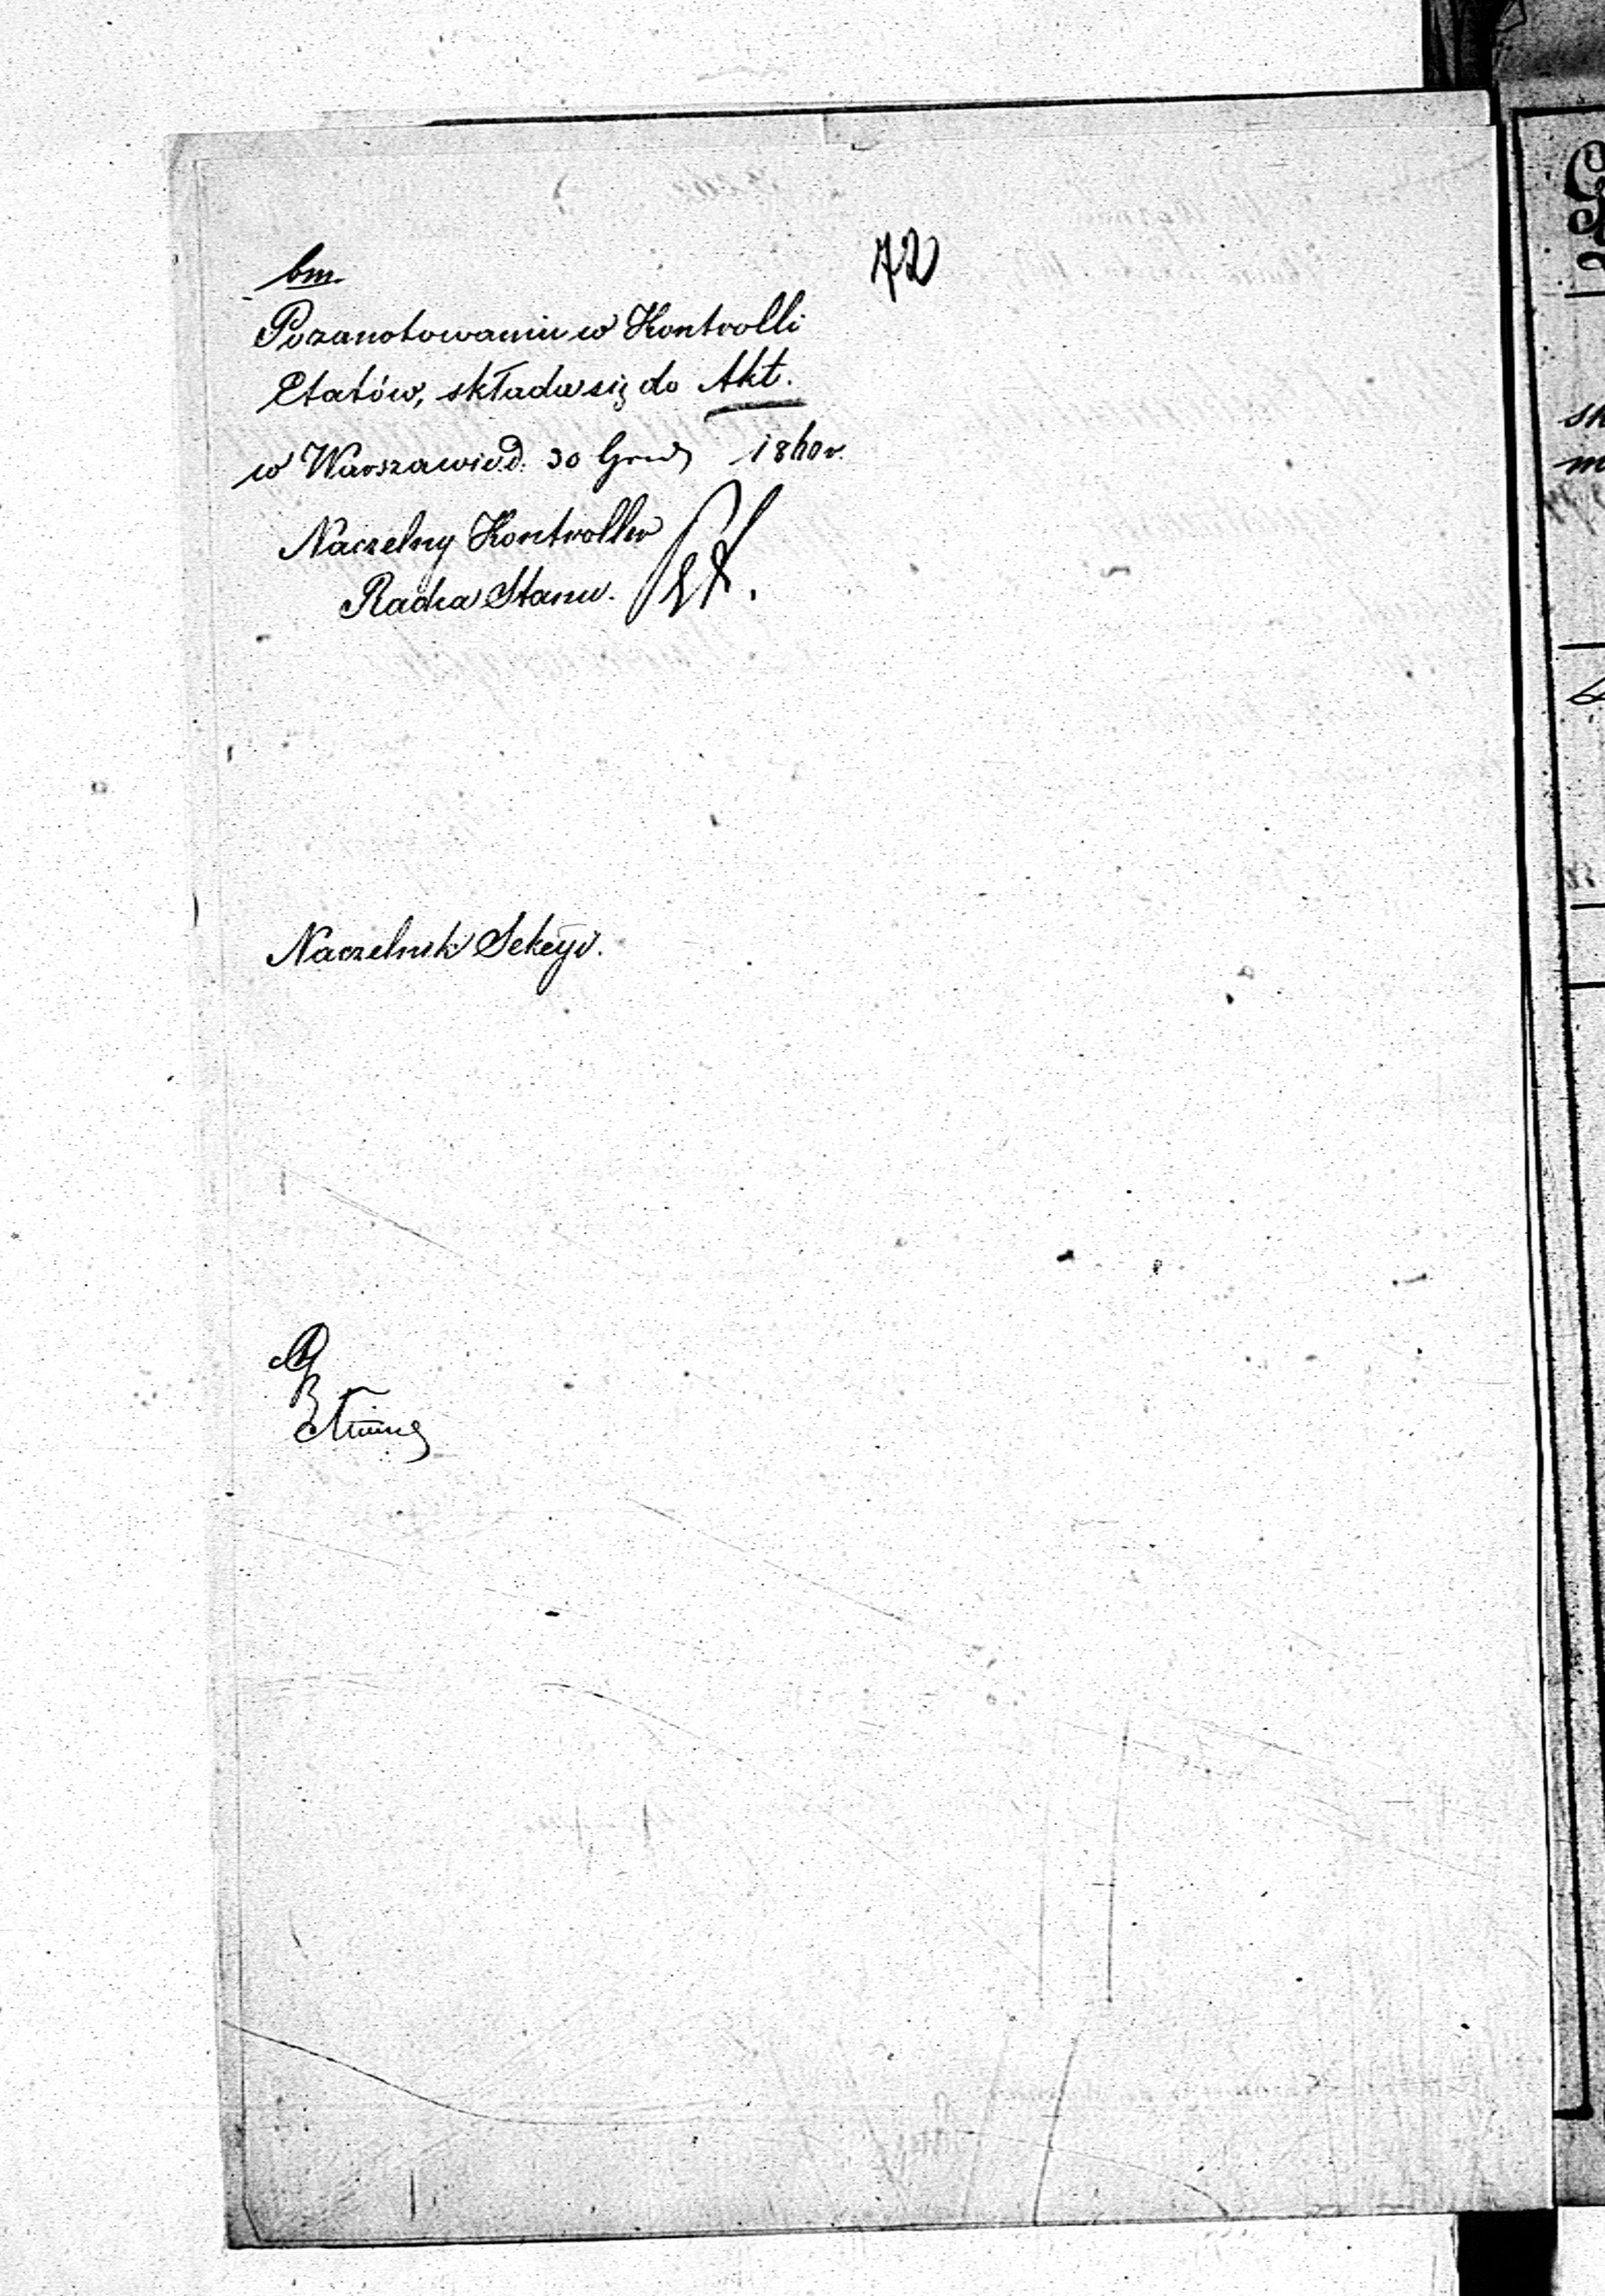 72
bm.
Po zanotowaniu w Kontrolli
Etatów, składa się do Akt.
w Warszawie d. 30 Grud 1860 r.
Naczelny Kontroller
Radca Stanu.
Naczelnik Sekcyi.